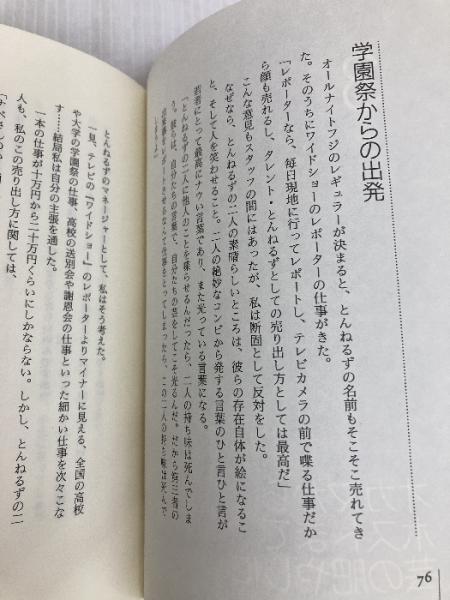 学園祭からの出発
オールナイトフジのレギュラーが決まると、とんねるずの名前もそこそこ売れてき
た。そのうちにワイドショーのレポーターの仕事がきた。
「レポーターなら、毎日現地に行ってレポートし、テレビカメラの前で喋る仕事だか
ら顔も売れるし、タレント・とんねるずとしての売り出し方としては最高だ」
こんな意見もスタッフの間にはあったが、私は断固として反対をした。
なぜなら、とんねるずの二人の素晴らしいところは、彼らの存在自体が絵になるこ
と、そして人を笑わせること。二人の絶妙なコンビから発する言葉のひと言ひと言が
若者にとって最高にナウい言葉であり、また光っている言葉になる。
「とんねるずの二人に他人のことを喋らせるんだったら、二人の持ち味は死んでしま
う。彼らは、自分たちの言葉で、自分たちの芸をしてこそ光るんだ。だから第三者の
とんねるずのマネージャーとして、私はそう考えた。
一見、テレビの『ワイドショー』のレポーターよりマイナーに見える、全国の高校
や大学の学園祭の仕事、高校の送別会や謝恩会の仕事といった細かい仕事を次々こな
す……結局私は自分の主張を通した。
一本の仕事が十万円から二十万円くらいにしかならない。しかし、とんねるずの二
人も、私のこの売り出し方に関しては、
76